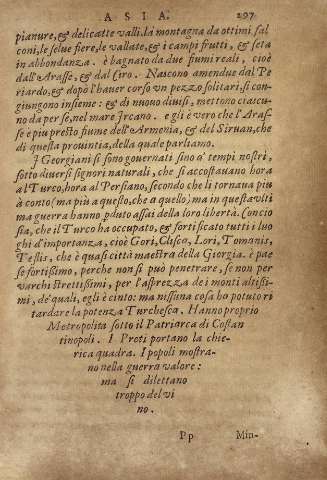 ASIA. 297
pianure, & delicatte valli. la montagna da ottimi fal
coni, le selue fiere, le vallate, & i campi frutti, & seta
in abbondanza. è bagnato da due fiumi reali, cioè
dall'Arasse, & dal Ciro. Nascono amendue dal Pe
riardo, & dopò l'hauer corso vn pezzo solitari, si con
giungono insieme: & di nuouo diuisi, mettono ciascu
no da per se, nel mare Ircano. e gli è vero che l'Aras-
se è piu presto fiume dell'Armenia, & del Siruan, che
di questa prouintia, della quale parliamo.
I Georgiani si sono gouernati sino a' tempi nostri,
sotto diuersi signori naturali, che si accostauano hora
al Turco, hora al Persiano, secondo che li tornaua piu
à conto (ma più a questo, che a quello) ma in questa vlti
ma guerra hanno pduto assai della loro libertà. Concio
sia, che il Turco ha occupato, & fortificato tutti i luo
ghi d'importanza, cioè Gori, Clisca, Lori, Tomanis,
Teflis, che è quasi città maestra della Giorgia. è pae
se fortissimo, perche non si può penetrare, se non per
varchi strettissimi, per l'asprezza de i monti altissi-
mi, de' quali, egli è cinto: ma nissuna cosa ha potuto ri
tardare la potenza Turchesca. Hanno proprio
Metropolita sotto il Patriarca di Costan
tinopoli. I Preti portano la chie-
rica quadra. I popoli mostra-
no nella guerra valore:
ma si dilettano
troppo del vi
no.
Pp Min-